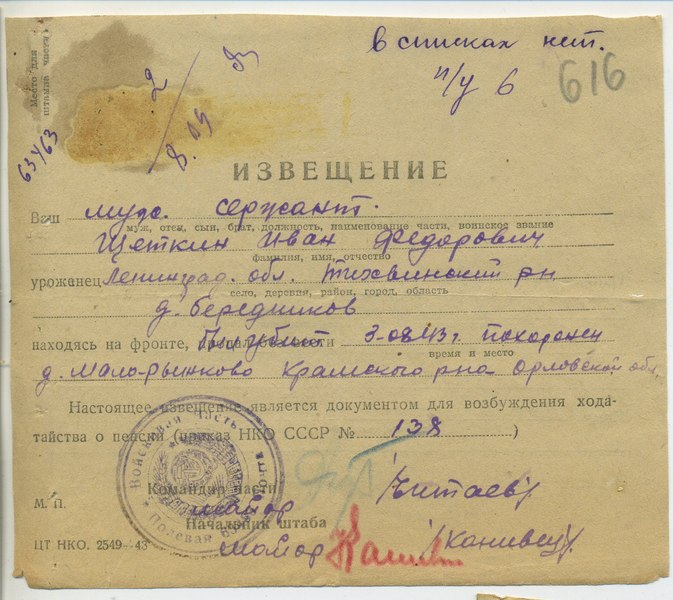 Место для
штампа части
63463
2
8.09
в списках нет.
п/у 6
616
ИЗВЕЩЕНИЕ
Ваш муж. сержант.
муж, отец, сын, брат, должность, наименование части, воинское звание
Щеткин Иван Федорович
фамилия, имя, отчество
уроженец Ленинград. обл. Тихвинский рн
село, деревня, район, город, область
д. Бередников
находясь на фронте, 3-08-43г. похоронен
время и место
д. Мало-рыжково Крамского р-на Орловской обл.
Настоящее извещение является документом для возбуждения хода-
тайства о пенсии (приказ НКО СССР № 138 )
Войсковая часть
Полевая почта
Командир части
майор /Читаев/
М. П.
Начальник штаба
майор /Канивец/
ЦТ НКО. 2549—43